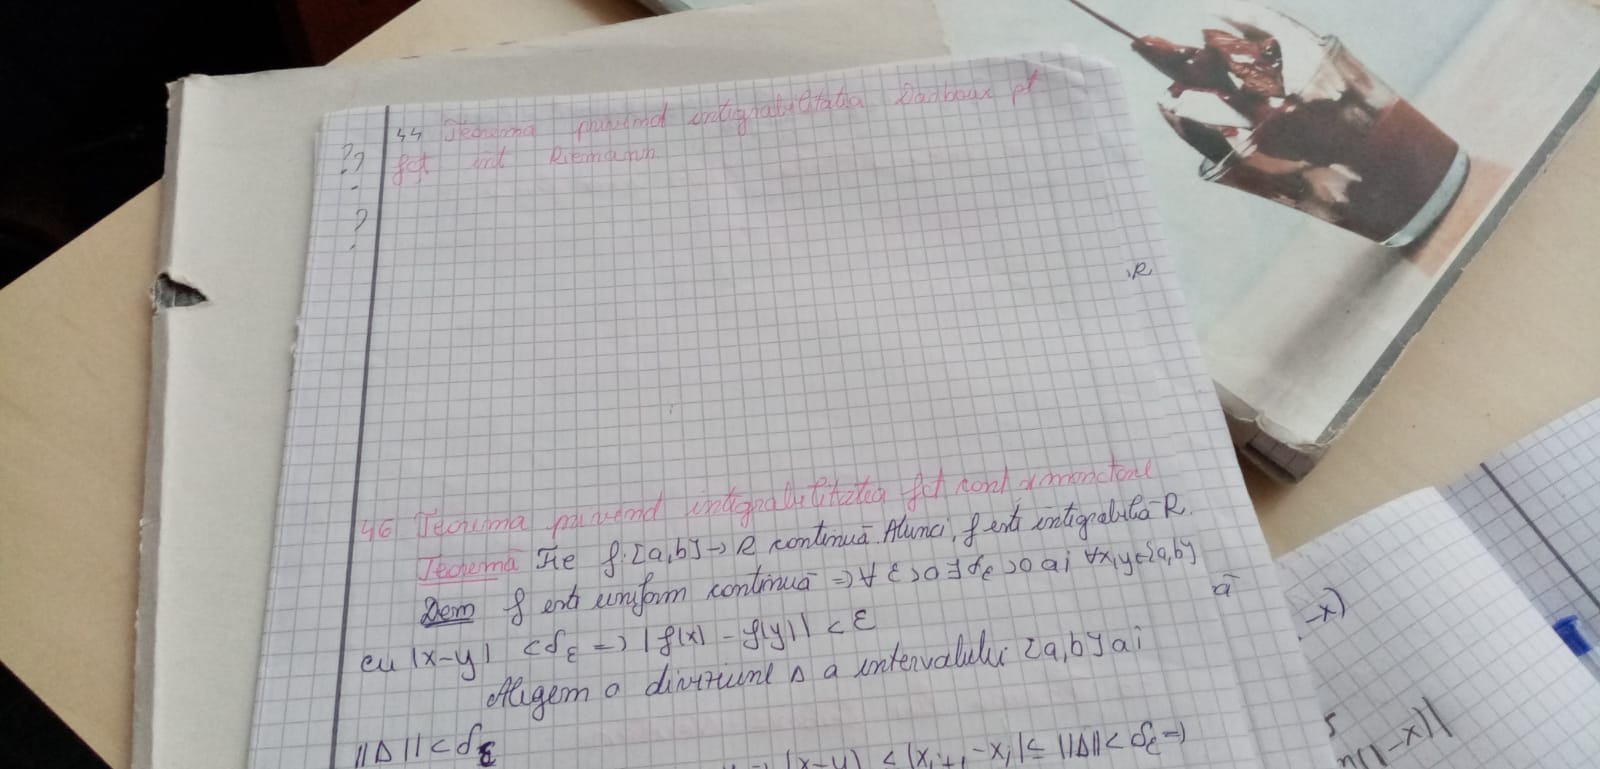 ??
.
?
44 Teorema privind integrabilitatea Darboux pt
fct int Riemann
,R
46 Teorema privind integrabilitatea fct cont si monotone
Teorema Fie f:[a,b]→R continuă. Atunci, f este integrabilă R.
Dem f este uniform continuă => ∀ ε>0 ∃ δε >0 ai ∀x,y∈[a,b]
cu |x-y| <δε => |f(x) - f(y)| < ε
ă
Alegem o diviziune Δ a intervalului [a,b] ai
||Δ|| < δε
|x-y| < |xi+1 - xi| ≤ ||Δ|| < δε =>
-x)
(1-x)|